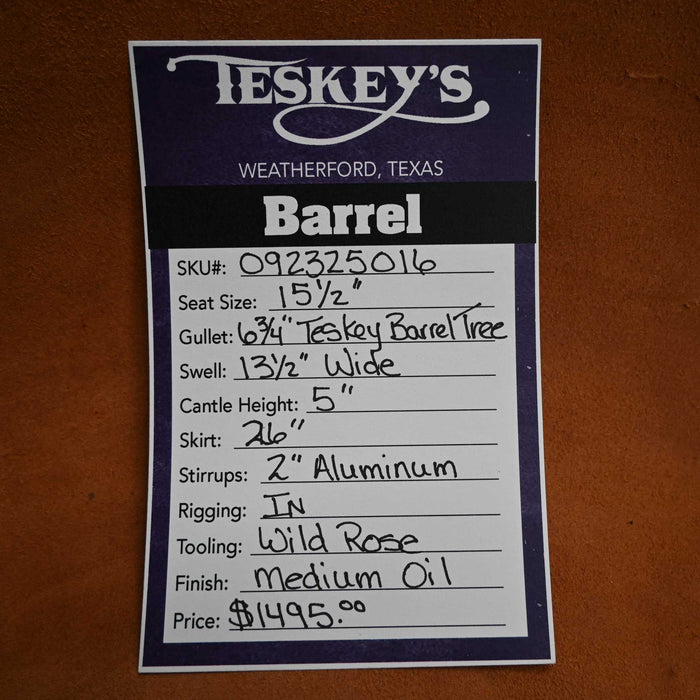 TESKEY'S
WEATHERFORD, TEXAS
Barrel
SKU#: 092325016
Seat Size: 15 1/2"
Gullet: 6 3/4" Teskey Barrel Tree
Swell: 13 1/2" Wide
Cantle Height: 5"
Skirt: 26"
Stirrups: 2" Aluminum
Rigging: IN
Tooling: Wild Rose
Finish: Medium Oil
Price: $1495.00